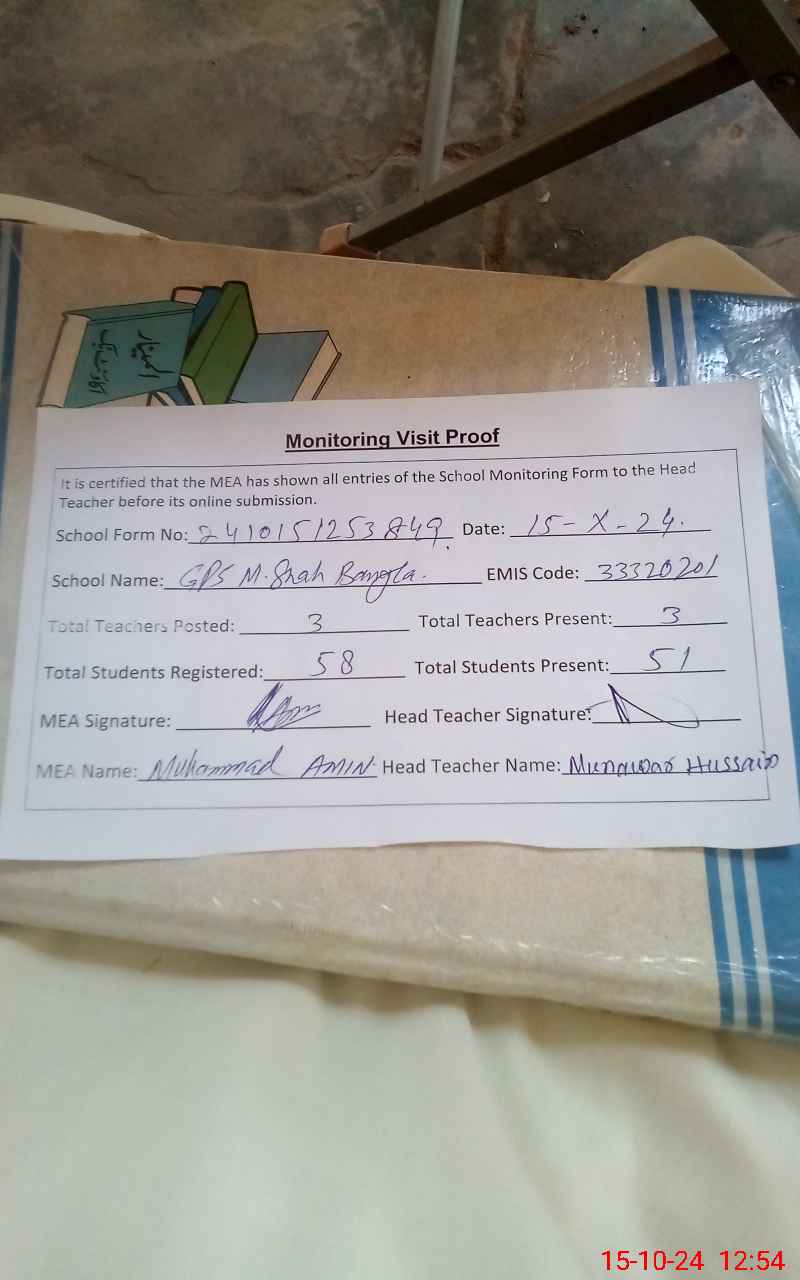 المینار
اکاؤنٹ بک
Monitoring Visit Proof
It is certified that the MEA has shown all entries of the School Monitoring Form to the Head
Teacher before its online submission.
School Form No: 2410151253849. Date: 15-X-24.
School Name: GPS M. Shah Bangla. EMIS Code: 33320201
Total Teachers Posted: 3 Total Teachers Present: 3
Total Students Registered: 58 Total Students Present: 51
MEA Signature: Head Teacher Signature:
MEA Name: Muhammad AMIN Head Teacher Name: Munawar Hussain
15-10-24 12:54